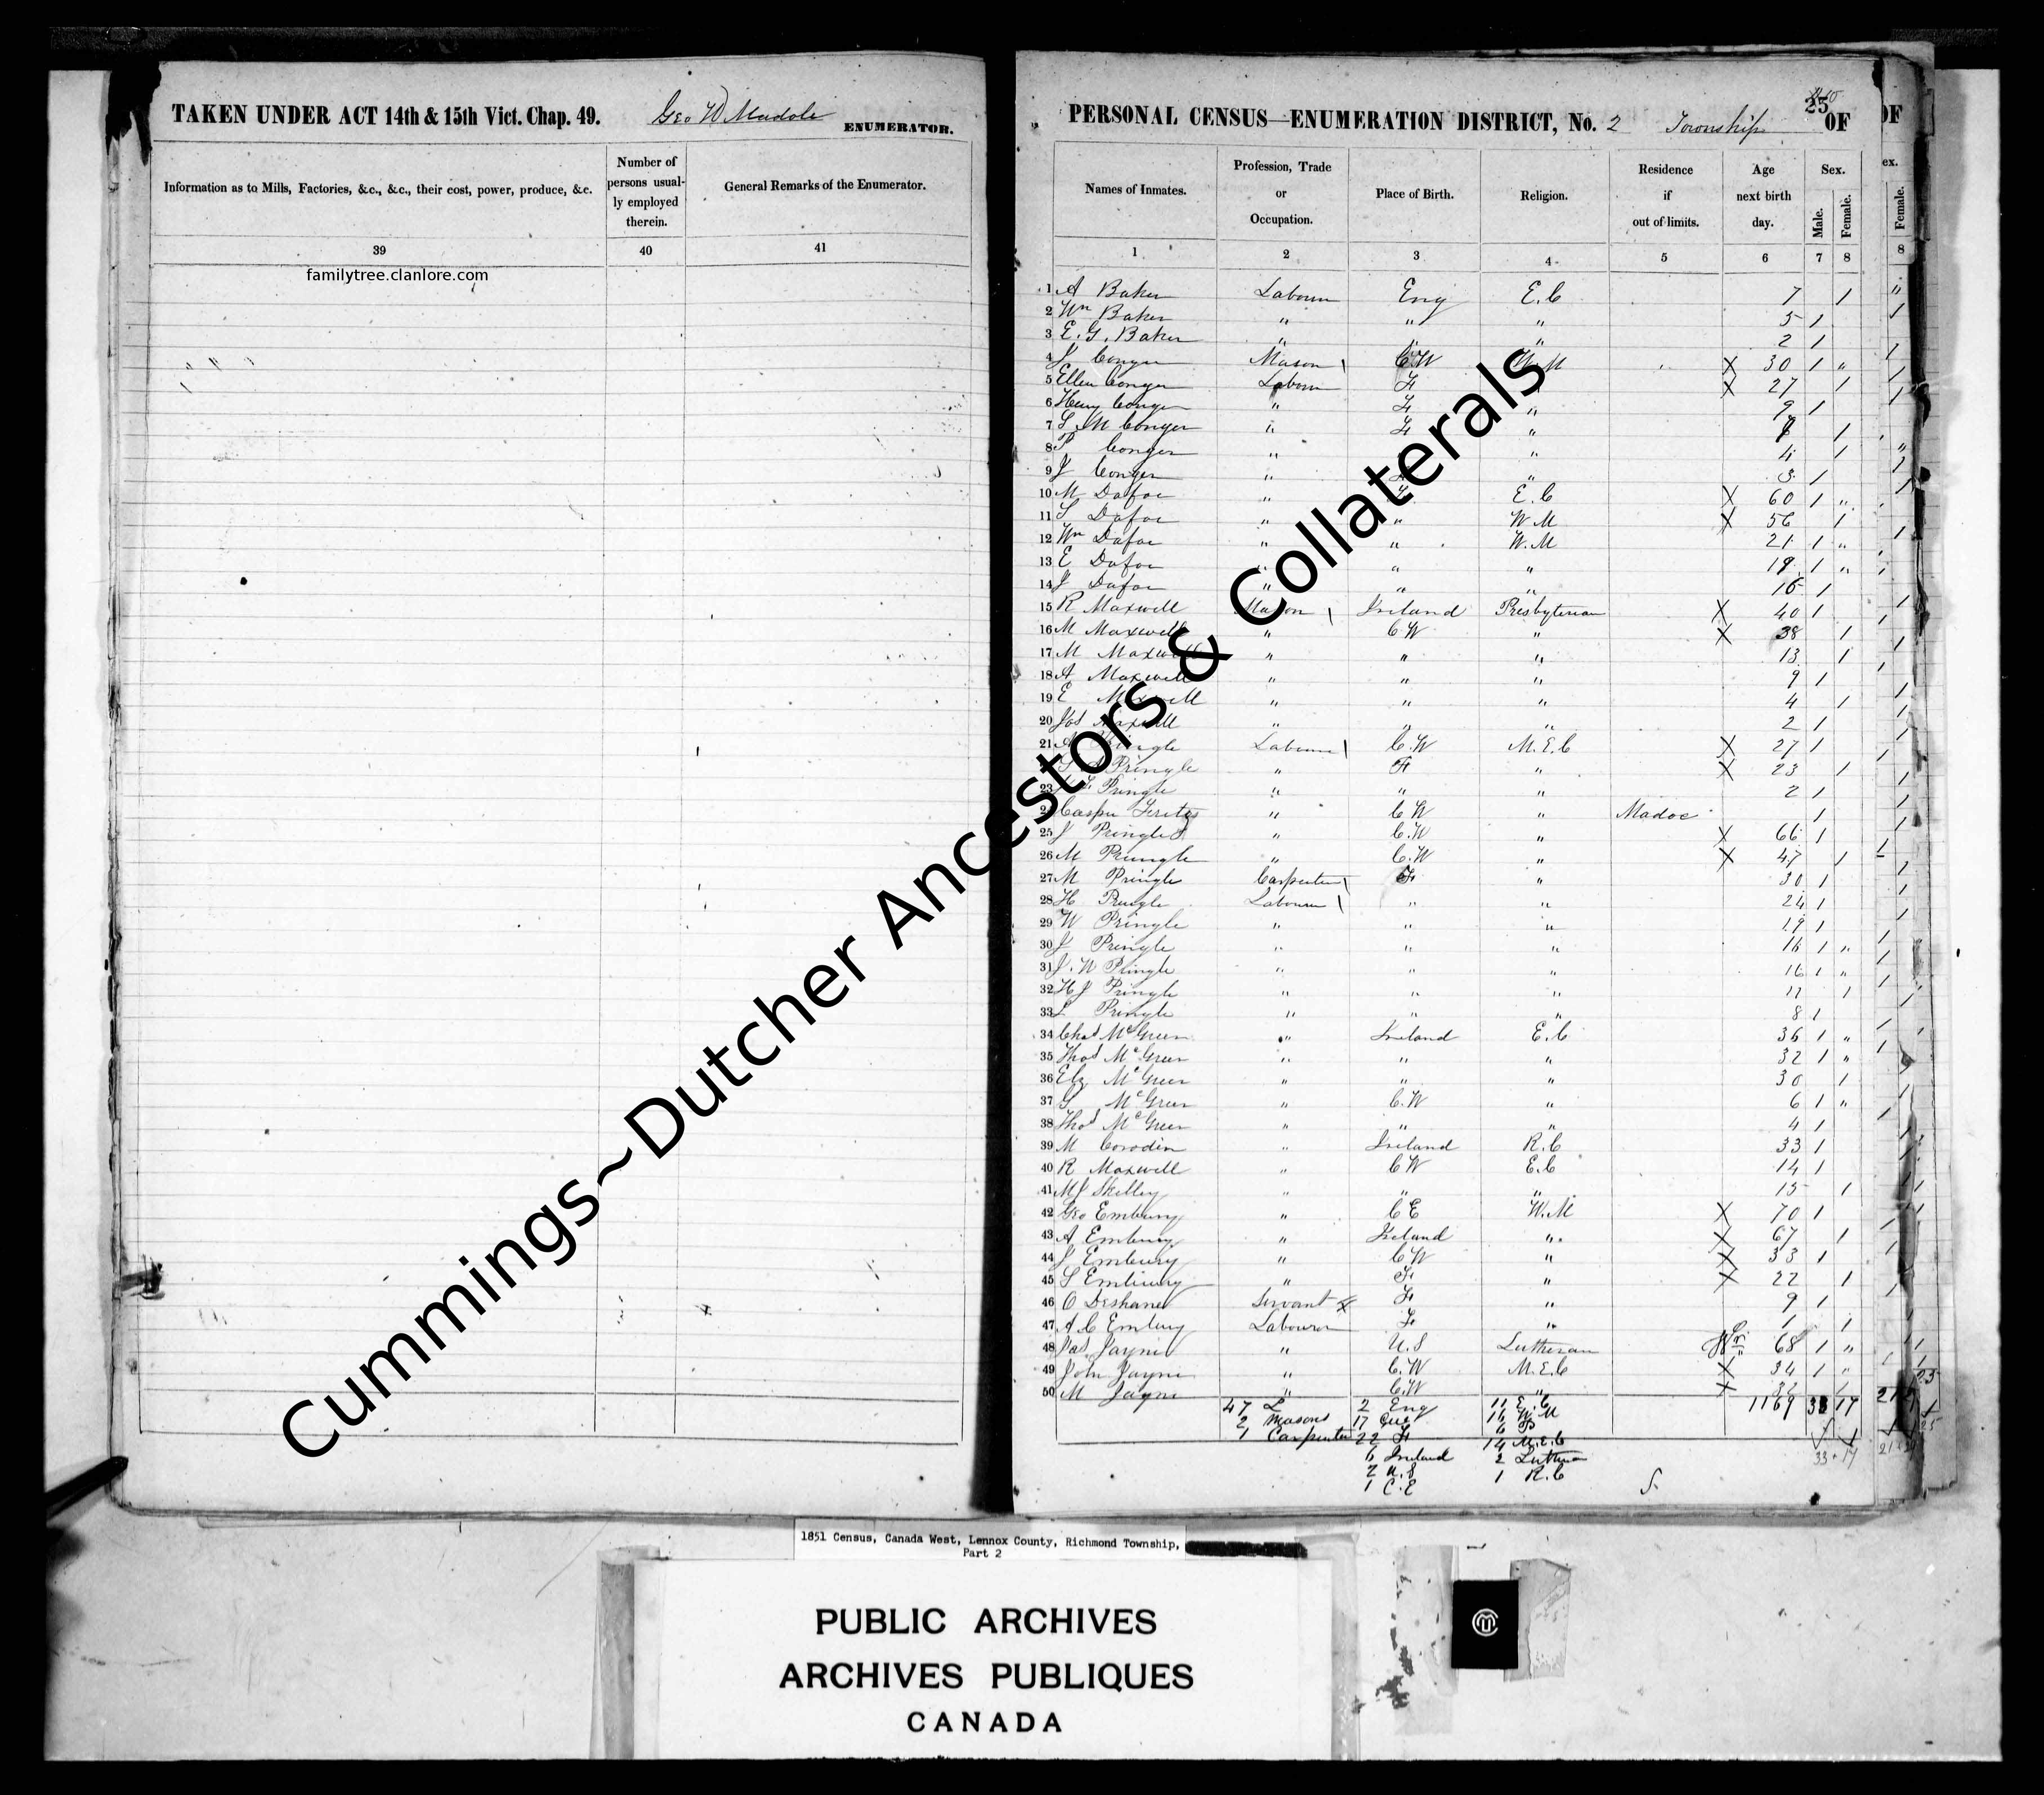 TAKEN UNDER ACT 14th & 15th Vict. Chap. 49. Geo W Madole ENUMERATOR.
Information as to Mills, Factories, &c., &c., their cost, power, produce, &c.
Number of persons usual-
ly employed therein.
General Remarks of the Enumerator.
39 40 41
familytree.clanlore.com
PERSONAL CENSUS—ENUMERATION DISTRICT, No. 2 Township 25 OF
Names of Inmates. Profession, Trade or Occupation. Place of Birth. Religion. Residence if out of limits. Age next birth day. Sex. Male. Female.
1 2 3 4 5 6 7 8
1 A Baker Labourer Eng E.C 7 1
2 Wm Baker " " " 5 1
3 E. G. Baker " " 2 1
4 J Conger Mason C.W W.M X 30 1 "
5 Ellen Conger Labourer F X 27 1
6 Henry Conger " F " 9 1
7 S. M Conger " F " 1
8 P Conger " " 4 1
9 J Conger " " 3 1
10 M Dafoe " E.C X 60 1 "
11 S Dafoe " " W M X 56 1
12 Wm Dafoe " " W.M 21 1 "
13 E Dafoe " " " 19 1 "
14 J Dafoe " " " 16 1
15 R Maxwell Mason Ireland Presbyterian X 40 1
16 M Maxwell " C W " X 38 1
17 M Maxwell " " " 13 1
18 A Maxwell " " " 9 1
19 E Maxwell " " " 4 1
20 Jas Maxwell " " " 2 1
21 Pringle Labourer C.W M.E.C X 27 1
Pringle " F " X 23 1
23 Pringle " " " 2 1
Casper " C W " Madoc 1
25 J Pringle " C.W " X 66 1
26 M Pringle " C.W " X 47 1
27 M Pringle Carpenter F " 30 1
28 H Pringle Labourer " " 24 1
29 W Pringle " " " 19 1
30 J Pringle " " " 16 1 "
31 J. W Pringle " " " 16 1 "
32 H J Pringle " " " 1
33 L Pringle " " " 8 1
34 Chas McGreen " Ireland E.C 36 1 "
35 Thos McGreen " " " 32 1 "
36 Elz McGreen " " " 30 1
37 S McGreen " C.W " 6 1 "
38 Thos McGreen " " " 4 1
39 M Corodin " Ireland R.C 33 1
40 R Maxwell " C W E.C 14 1
41 M J Skelley " " " 15 1
42 Geo Embury " C E W.M X 70 1
43 A Embury " Ireland " X 67 1
44 J Embury " C W " X 33 1
45 S Embury " F " X 22 1
46 O Deshane Servant F " 9 1
47 A C Embury Labourer F " 1 1
48 Jas Jayne " U.S Lutheran 68 1 "
49 John Jayne " C.W M.E.C X 34 1 "
50 M Jayne " C.W " X 1
47 L 2 Eng 11 E.C 1169 33 17
2 Masons 17 16 W M
1 Carpenter 22 F 6 P
14 M.E.C
6 Ireland 2 Lutheran
2 U.S 1 R.C
1 C.E
33 + 17
Cummings~Dutcher Ancestors & Collaterals
OF
ex.
Female.
8
1851 Census, Canada West, Lennox County, Richmond Township,
Part 2
PUBLIC ARCHIVES
ARCHIVES PUBLIQUES
CANADA